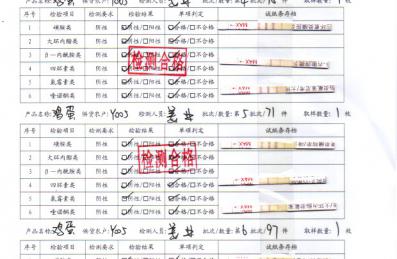 产品名称: 鸡蛋 供货农户: Y005 检测人员: 批次/数量: 第4批次/ 件 取样数量: 1枚
序号 检验项目 检测要求 检验结果 单项判定 试纸条存档
1 磺胺类 阴性 ☑阴性/☐阳性 ☑合格/☐不合格
2 大环内酯类 阴性 ☑阴性/☐阳性 ☑合格/☐不合格
3 β-内酰胺类 阴性 ☑阴性/☐阳性 ☑合格/☐不合格
4 四环素类 阴性 ☑阴性/☐阳性 ☑合格/☐不合格
5 氟苯尼类 阴性 ☑阴性/☐阳性 ☑合格/☐不合格
6 喹诺酮类 阴性 ☑阴性/☐阳性 ☑合格/☐不合格
检测合格
产品名称: 鸡蛋 供货农户: Y003 检测人员: 批次/数量: 第5批次/71件 取样数量: 1枚
序号 检验项目 检测要求 检验结果 单项判定 试纸条存档
1 磺胺类 阴性 ☑阴性/☐阳性 ☑合格/☐不合格
2 大环内酯类 阴性 ☑阴性/☐阳性 ☑合格/☐不合格
3 β-内酰胺类 阴性 ☑阴性/☐阳性 ☑合格/☐不合格
4 四环素类 阴性 ☑阴性/☐阳性 ☑合格/☐不合格
5 阴性 ☑阴性/☐阳性 ☑合格/☐不合格
6 喹诺酮类 阴性 ☑阴性/☐阳性 ☑合格/☐不合格
检测合格
产品名称: 鸡蛋 供货农户: Y005 检测人员: 批次/数量: 第6批次/97件 取样数量: 1枚
序号 检验项目 检测要求 检验结果 单项判定 试纸条存档